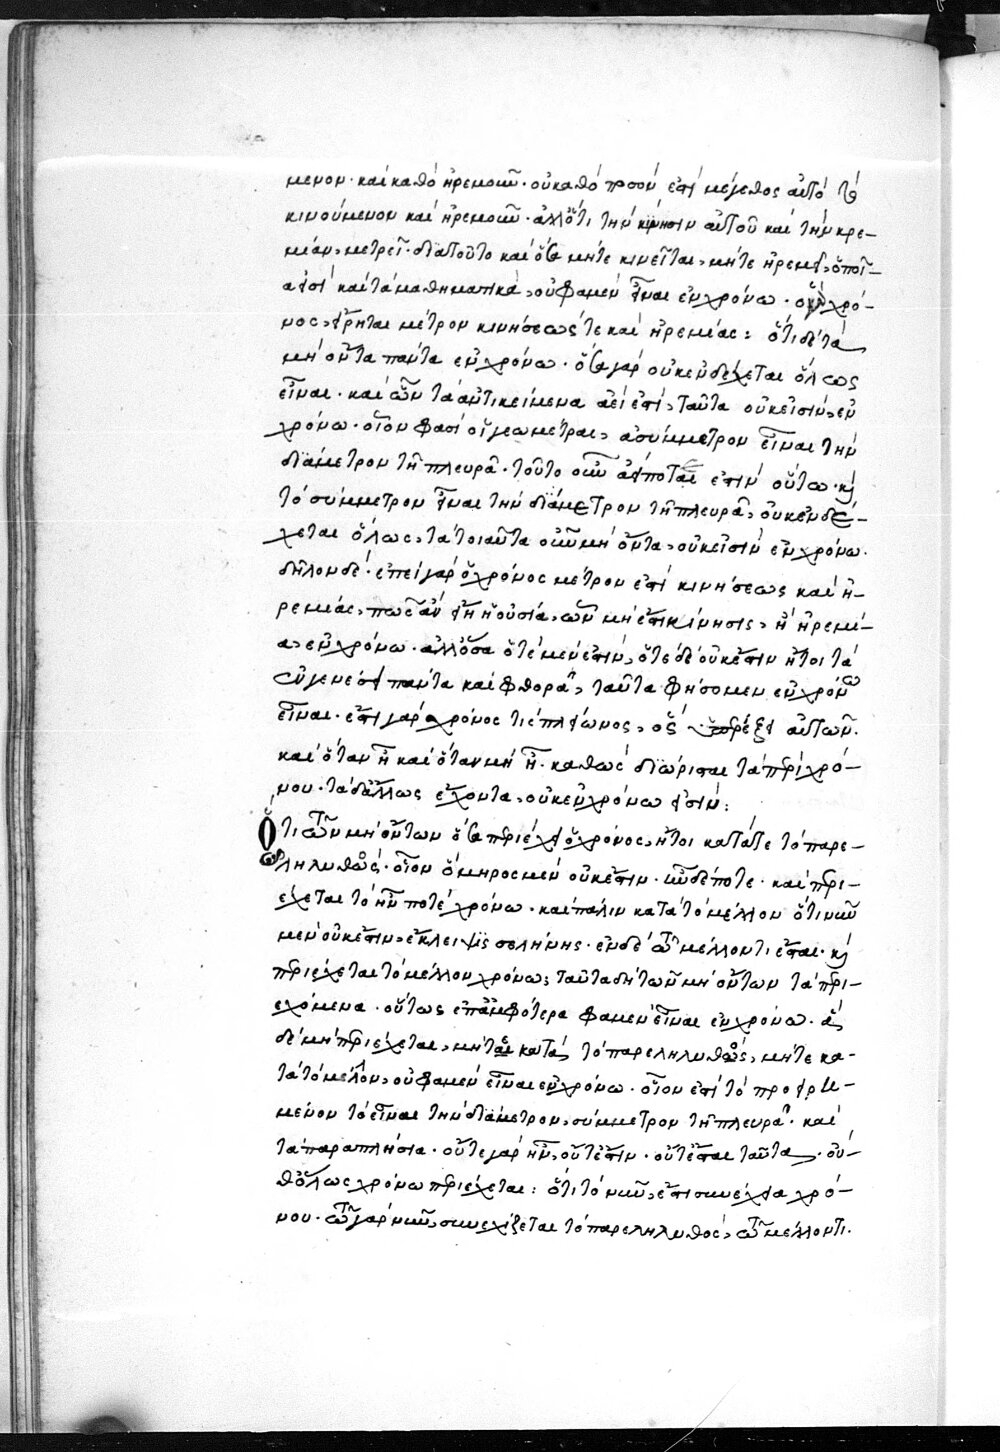 μενον· καὶ καθὸ ἠρεμοῦν· οὐ καθὸ ποσόν ἐστὶ μέγεθος αὐτὸ τὸ
κινούμενον καὶ ἠρεμοῦν· ἀλλ' ὅτι τὴν κίνησιν αὐτοῦ καὶ τὴν ἠρε-
μίαν, μετρεῖ· διατοῦτο καὶ ὅσα μήτε κινεῖται, μήτε ἠρεμεῖ, ὁποῖ-
α εἰσὶ καὶ τὰ μαθηματικὰ, οὐ φαμὲν εἶναι ἐν χρόνω· ὁ χρό-
νος, εἴρηται μέτρον κινήσεως τὲ καὶ ἠρεμίας: ὅτι δὲ τὰ
μὴ ὄντα πάντα ἐν χρόνω· ὅσα γὰρ οὐκ ἐνδέχεται ὅλως
εἶναι· καὶ ὧν τὰ ἀντικείμενα ἀεί ἐστι, ταῦτα οὐκ εἰσὶν, ἐν
χρόνω· οἷον φασὶ οἱ γεωμέτραι, ἀσύμμετρον εἶναι τὴν
διάμετρον τῆ πλευρᾶ· τοῦτο οὖν ἀεί ποτε ἐστὶν οὕτω· καὶ
τὸ σύμμετρον εἶναι τὴν διάμετρον τῆ πλευρᾶ, οὐκ ἐνδέ-
χεται ὅλως, τὰ τοιαῦτα οὖν μὴ ὄντα, οὐκ εἰσὶν ἐν χρόνω·
δῆλον δέ· ἐπεὶ γὰρ ὁ χρόνος μέτρον ἐστὶ κινήσεως καὶ ἠ-
ρεμίας, πῶς ἂν εἴη ἡ οὐσία, ὧν μή ἐστι κίνησις, ἢ ἠρεμί-
α, ἐν χρόνω· ἀλλ' ὅσα ὁτὲ μὲν ἐστὶν, ὁτὲ δὲ οὐκ ἔστιν ἤτοι τὰ
ἐν γενέσει πάντα καὶ φθορᾶ, ταῦτα φήσομεν ἐν χρόνω
εἶναι· ἔστι γὰρ χρόνος τὶς πλείωνος, ὃς ὑπερέξει αὐτῶν·
καὶ ὅταν ἦ καὶ ὅταν μὴ ἦ· καθὼς διώρισται τὰ περὶ χρό-
νου· τὰ δ' ἄλλως ἔχοντα, οὐκ ἐν χρόνω εἰσίν:
Ὅτι τῶν μὴ ὄντων ὅσα περιέχει ὁ χρόνος, ἤτοι κατὰ τε τὸ παρε-
ληλυθὼς· οἷον ὅμηρος μὲν οὐκ ἔστιν· ἦν δέ ποτε· καὶ περι-
έχεται τὸ ἦν ποτὲ χρόνω· καὶ πάλιν κατὰ τὸ μέλλον ὅτι νῦν
μὲν οὐκ ἔστιν, ἔκλειψις σελήνης· ἐν δὲ τῶ μέλλοντι ἔσται· καὶ
περιέχεται τὸ μέλλον χρόνω, ταῦτα δὴ τῶν μὴ ὄντων τὰ περι-
εχόμενα· οὕτως ἐπ' ἀμφότερα φαμὲν εἶναι ἐν χρόνω· ἃ
δὲ μὴ περιέχεται, μήτε κατὰ τὸ παρεληλυθὼς, μήτε κα-
τὰ τὸ μέλλον, οὐ φαμὲν εἶναι ἐν χρόνω· οἷον ἐστὶ τὸ προειρη-
μένον τὸ εἶναι τὴν διάμετρον, σύμμετρον τῆ πλευρᾶ· καὶ
τὰ παραπλήσια· οὔτε γὰρ ἦν, οὔτ' ἔστιν· οὔτ' ἔσται ταῦτα, οὐ-
θ' ὅλως χρόνω περιέχεται: ὅτι τὸ νῦν, ἐστὶ συνέχεια χρό-
νου· τῶ γὰρ νῦν, συνεχίζεται τὸ παρεληλυθὸς, τῶ μέλλοντι·